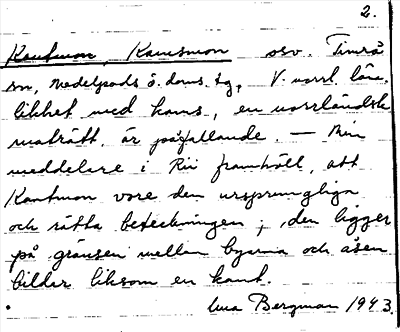 2.
Kantmon, Kamsmon osv. Timrå
sn, Medelpads ö. doms. tg, V. norrl. län.
likhet med kams, en norrländsk
maträtt, är påfallande. — Min
meddelare i Rii framhöll, att
Kantmon vore den ursprungliga
och rätta beteckningen; den ligger
på gränsen mellan byarna och åsen
bildar liksom en kant.
Bergman 1943.